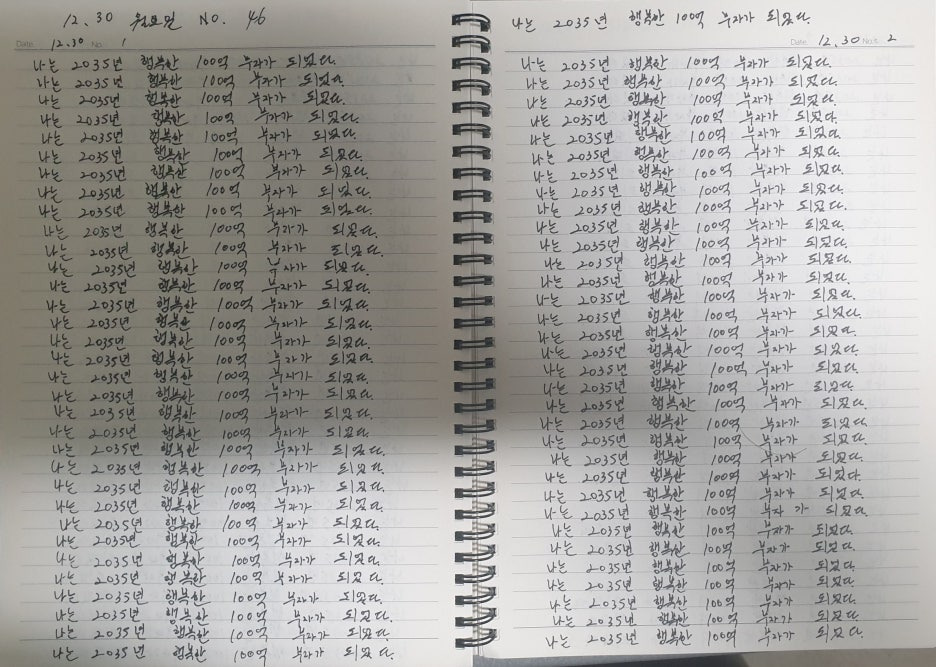 12.30 월요일 NO. 46
Date 12.30 No. 1
나는 2035년 행복한 100억 부자가 되었다.
나는 2035년 행복한 100억 부자가 되었다.
나는 2035년 행복한 100억 부자가 되었다.
나는 2035년 행복한 100억 부자가 되었다.
나는 2035년 행복한 100억 부자가 되었다.
나는 2035년 행복한 100억 부자가 되었다.
나는 2035년 행복한 100억 부자가 되었다.
나는 2035년 행복한 100억 부자가 되었다.
나는 2035년 행복한 100억 부자가 되었다.
나는 2035년 행복한 100억 부자가 되었다.
나는 2035년 행복한 100억 부자가 되었다.
나는 2035년 행복한 100억 부자가 되었다.
나는 2035년 행복한 100억 부자가 되었다.
나는 2035년 행복한 100억 부자가 되었다.
나는 2035년 행복한 100억 부자가 되었다.
나는 2035년 행복한 100억 부자가 되었다.
나는 2035년 행복한 100억 부자가 되었다.
나는 2035년 행복한 100억 부자가 되었다.
나는 2035년 행복한 100억 부자가 되었다.
나는 2035년 행복한 100억 부자가 되었다.
나는 2035년 행복한 100억 부자가 되었다.
나는 2035년 행복한 100억 부자가 되었다.
나는 2035년 행복한 100억 부자가 되었다.
나는 2035년 행복한 100억 부자가 되었다.
나는 2035년 행복한 100억 부자가 되었다.
나는 2035년 행복한 100억 부자가 되었다.
나는 2035년 행복한 100억 부자가 되었다.
나는 2035년 행복한 100억 부자가 되었다.
나는 2035년 행복한 100억 부자가 되었다.
나는 2035년 행복한 100억 부자가 되었다.
나는 2035년 행복한 100억 부자가 되었다.
나는 2035년 행복한 100억 부자가 되었다.
나는 2035년 행복한 100억 부자가 되었다.
나는 2035년 행복한 100억 부자가 되었다.
Date 12.30 No. 2
나는 2035년 행복한 100억 부자가 되었다.
나는 2035년 행복한 100억 부자가 되었다.
나는 2035년 행복한 100억 부자가 되었다.
나는 2035년 행복한 100억 부자가 되었다.
나는 2035년 행복한 100억 부자가 되었다.
나는 2035년 행복한 100억 부자가 되었다.
나는 2035년 행복한 100억 부자가 되었다.
나는 2035년 행복한 100억 부자가 되었다.
나는 2035년 행복한 100억 부자가 되었다.
나는 2035년 행복한 100억 부자가 되었다.
나는 2035년 행복한 100억 부자가 되었다.
나는 2035년 행복한 100억 부자가 되었다.
나는 2035년 행복한 100억 부자가 되었다.
나는 2035년 행복한 100억 부자가 되었다.
나는 2035년 행복한 100억 부자가 되었다.
나는 2035년 행복한 100억 부자가 되었다.
나는 2035년 행복한 100억 부자가 되었다.
나는 2035년 행복한 100억 부자가 되었다.
나는 2035년 행복한 100억 부자가 되었다.
나는 2035년 행복한 100억 부자가 되었다.
나는 2035년 행복한 100억 부자가 되었다.
나는 2035년 행복한 100억 부자가 되었다.
나는 2035년 행복한 100억 부자가 되었다.
나는 2035년 행복한 100억 부자가 되었다.
나는 2035년 행복한 100억 부자가 되었다.
나는 2035년 행복한 100억 부자 가 되었다.
나는 2035년 행복한 100억 부자가 되었다.
나는 2035년 행복한 100억 부자가 되었다.
나는 2035년 행복한 100억 부자가 되었다.
나는 2035년 행복한 100억 부자가 되었다.
나는 2035년 행복한 100억 부자가 되었다.
나는 2035년 행복한 100억 부자가 되었다.
나는 2035년 행복한 100억 부자가 되었다.